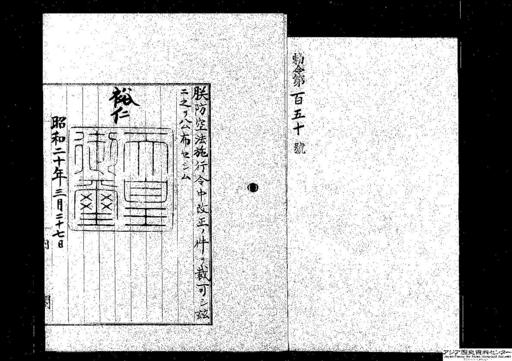 勅令第百五十號
朕防空法施行令中改正ノ件ヲ裁可シ玆
ニ之ヲ公布セシム
裕仁
天皇御璽
昭和二十年三月二十七日
内閣
アジア歴史資料センター